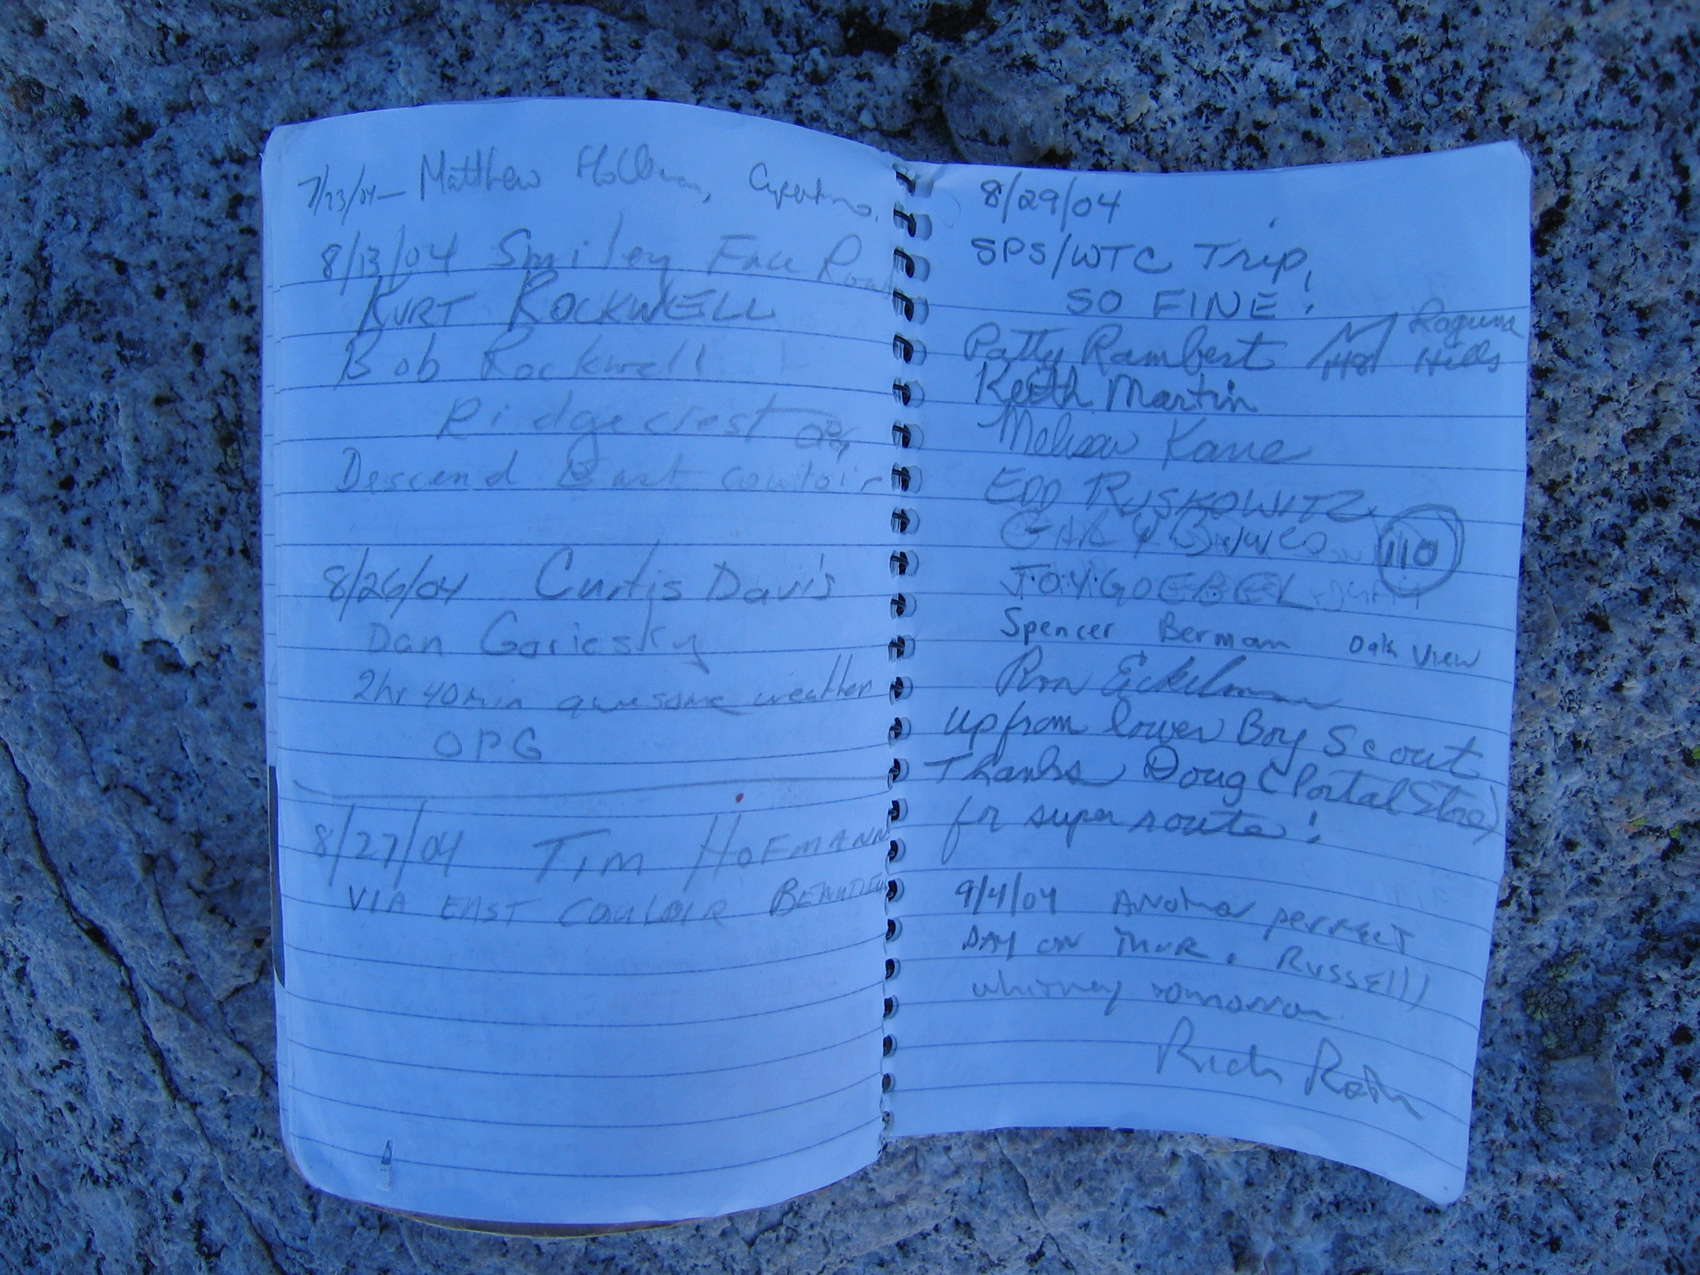 7/23/04 - Matthew Holliman, Cupertino.
8/13/04 Smiley Face Rout
KURT ROCKWELL
Bob Rockwell
Ridgecrest
Descend East couloir
8/26/04 Curtis Davis
Dan Goriesky
2hr 40min awesome weather
OPG
8/27/04 TIM HOFMANN
VIA EAST COULOIR BEAUTIFUL
8/29/04
SPS/WTC Trip,
SO FINE!
Patty Rambert Laguna
Hills
Keith Martin
Melissa Kane
EDD RUSKOWITZ
GARY 110
JOY GOEBEL
Spencer Berman Oak View
Ron Eckelmann
Up from lower Boy Scout
Thanks Doug (Portal Store)
for super route!
9/4/04 Another perfect
DAY ON THUR. RUSSELL)
whitney tomorrow
Rich